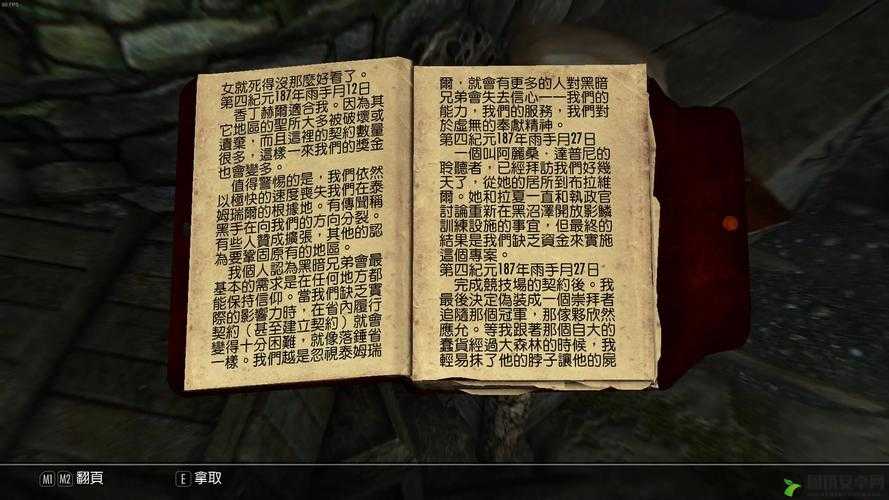 60 FPS
女就死得沒那麼好看了。
第四紀元187年雨手月12日
香丁赫爾適合我。因為其
它地區的聖所大多被破壞或
遺棄，而且這裡的契約數量
很多，這樣一來我們的獎金
也會變多。
值得警惕的是，我們依然
以極快的速度喪失我們在泰
姆瑞爾的根據地。有傳聞稱
黑手在向我們的方向分裂。
有些人贊成擴張，其他的認
為要鞏固原有的地區。
我個人認為黑暗兄弟會最
基本的需求是在任何地方都
能保持信仰。當我們缺乏實
際的影響力時，在省內履行
契約（甚至建立契約）就會
變得十分困難，就像落錘省
一樣。我們越是忽視泰姆瑞
爾，就會有更多的人對黑暗
兄弟會失去信心——我們的
能力，我們的服務，我們對
於虛無的奉獻精神。
第四紀元187年雨手月27日
一個叫阿麗桑，達普尼的
聆聽者，已經拜訪我們好幾
天了，從她的居所到布拉維
爾。她和拉夏一直和執政官
討論重新在黑沼澤開放影鱗
訓練設施的事宜，但最終的
結果是我們缺乏資金來實施
這個專案。
第四紀元187年雨手月27日
完成競技場的契約後。我
最後決定偽裝成一個崇拜者
追隨那個冠軍，那傢夥欣然
應允。等我跟著那個自大的
蠢貨經過大森林的時候，我
輕易抹了他的脖子讓他的屍
M1 M2 翻頁
E 拿取